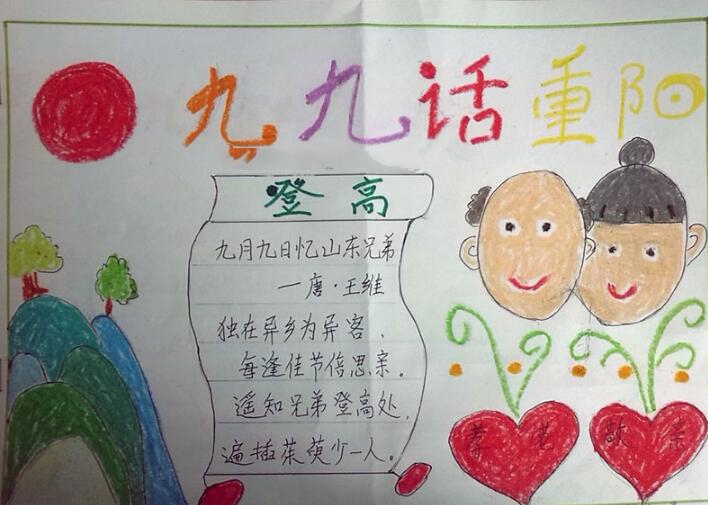 九九话重阳
登高
九月九日忆山东兄弟
—唐·王维
独在异乡为异客，
每逢佳节倍思亲。
遥知兄弟登高处，
遍插茱萸少一人。
孝老
敬亲